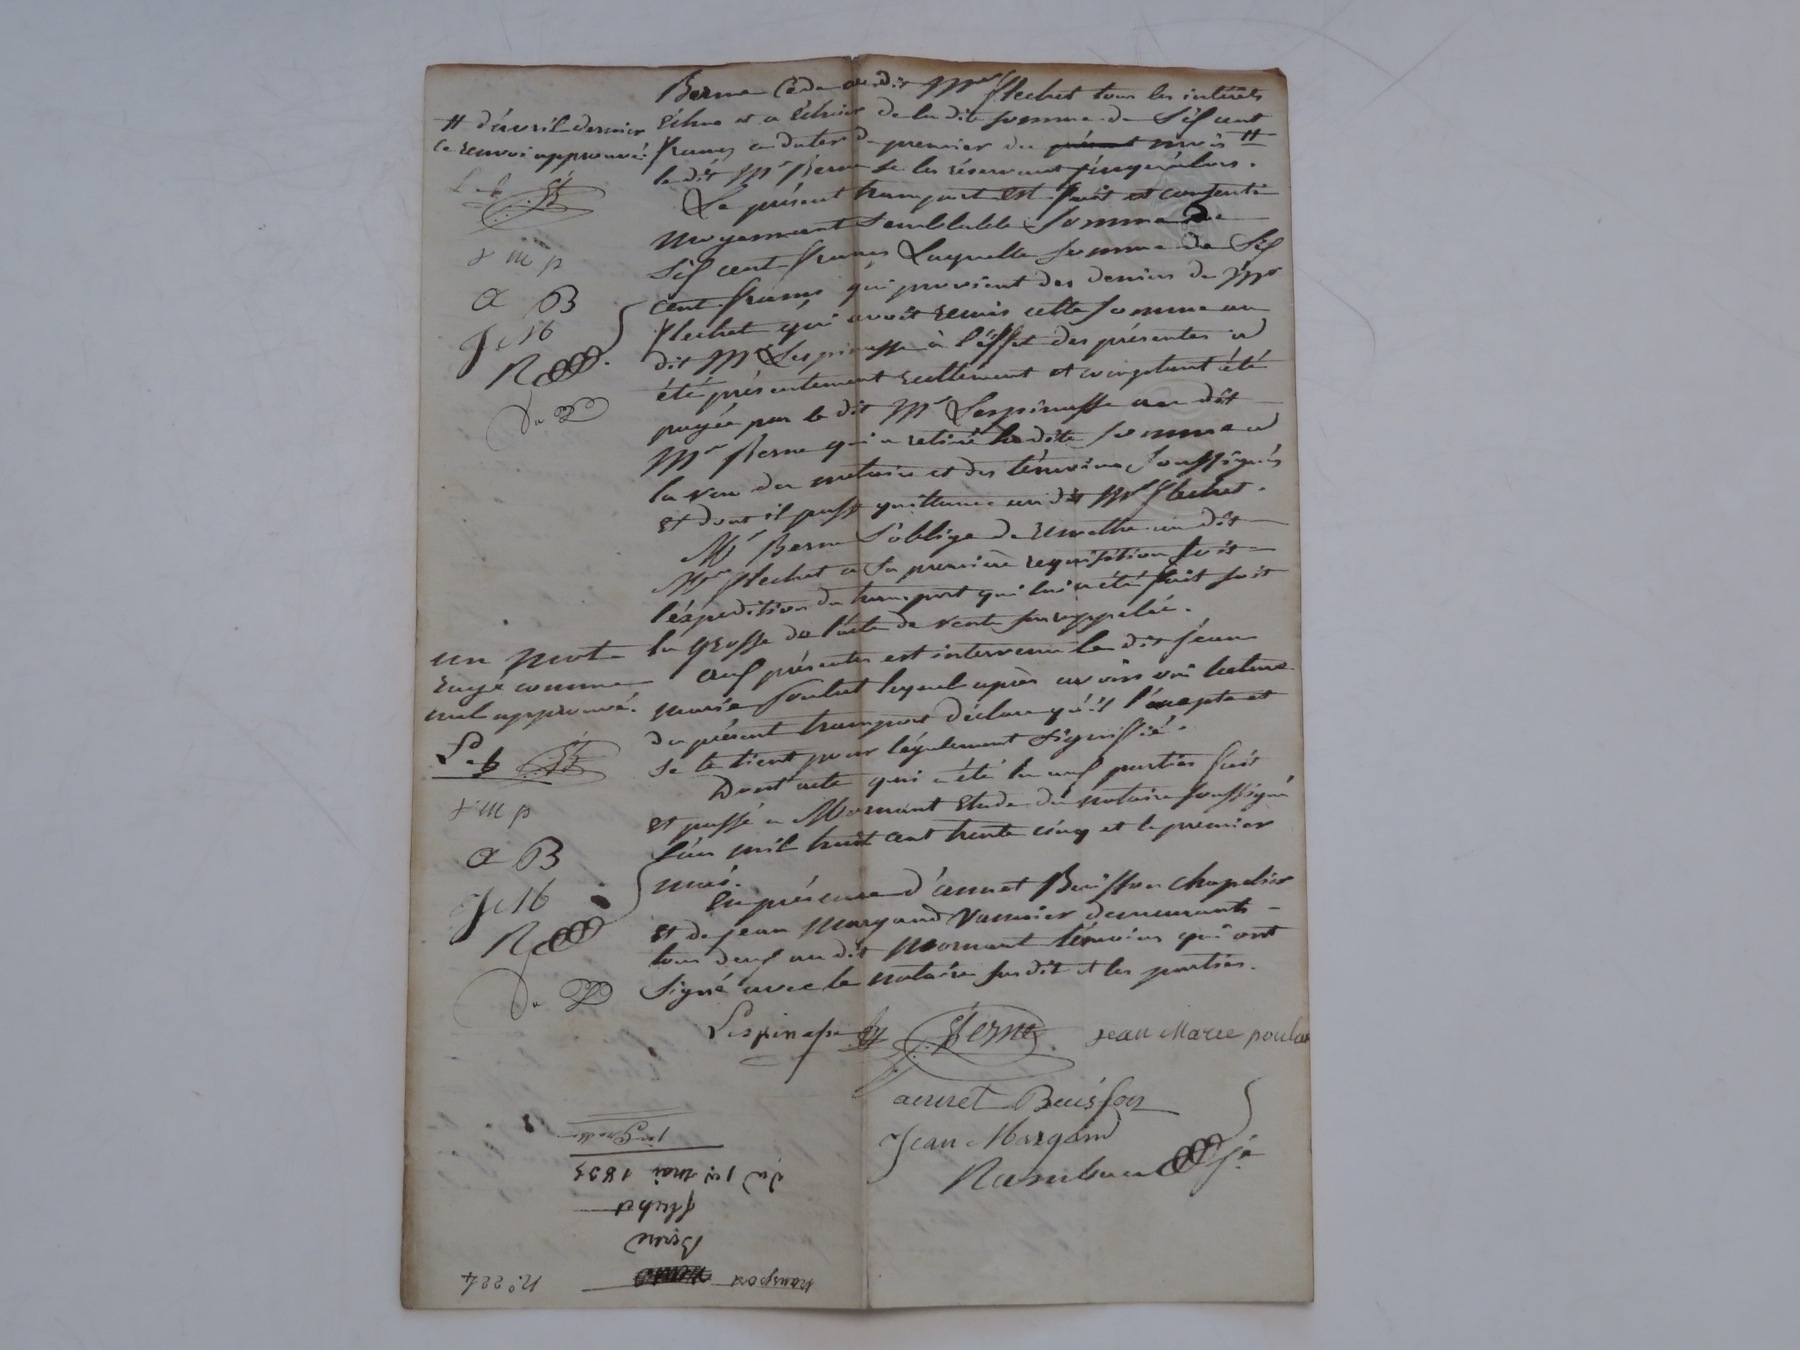 Berne Cède au dit Mr flechet tous les intérêts
échus et a échoir de la dite somme de Six cent
francs a dater du premier du présent mois #
le dit Mr Berne se les réservant jusqu'alors.
Le présent transport est fait et consenti
moyennant semblable somme de
Six cent francs Laquelle somme de Six
cent francs qui provient des deniers de Mr
flechet qui avoit remis cette somme au
dit Mr Lespinasse à l'éffet des présentes a
été présentement reellement et comptant été
payée par le dit Mr Lespinasse au dit
Mr Berne qui a retiré la dite somme a
la vue du notaire et des témoins soussignés
et dont il passe quittance au dit Mr flechet.
Mr Berne s'oblige de remettre au dit
Mr flechet a sa première requisition soit
l'éxpedition du transport qui lui a été fait soit
la grosse de l'acte de vente sus rappelée.
aux présentes est intervenu le dit jean
marie poulat lequel après avoir oui lecture
du présent transport déclare qu'il l'accepte et
se le tient pour légalement signifié.
Dont acte qui a été lu aux parties fait
et passé a Mornant Etude du notaire soussigné
l'an mil huit cent trente cinq et le premier
mai.
En présence d'annet Buisson chapelier
et de jean Margand vannier demeurants
tous deux au dit Mornant témoins qui ont
signé avec le notaire susdit et les parties.
# d'avril dernier
ce renvoi approuvé.
J m p
a B
J M
R
un mot
rayé comme
nul approuvé.
J m p
a B
J M
R
Lespinasse Berne Jean Marie poulat
annet Buisson
Jean Margand
Rambaud
N.° 224
transport
Berne
flechet
du 1er mai 1835
1re Grosse